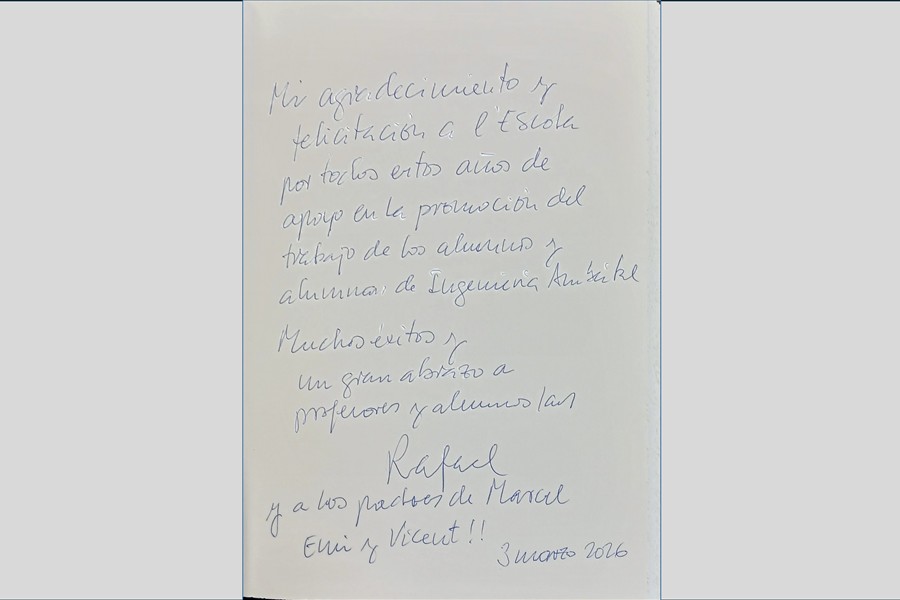 Mi agradecimiento y
felicitación a l'Escola
por todos estos años de
apoyo en la promoción del
trabajo de los alumnos y
alumnas de Ingeniería Ambiental
Muchos éxitos y
un gran abrazo a
profesores y alumnos/as
Rafael
y a los padres de Marcel
Emi y Vicent!!
3 marzo 2026